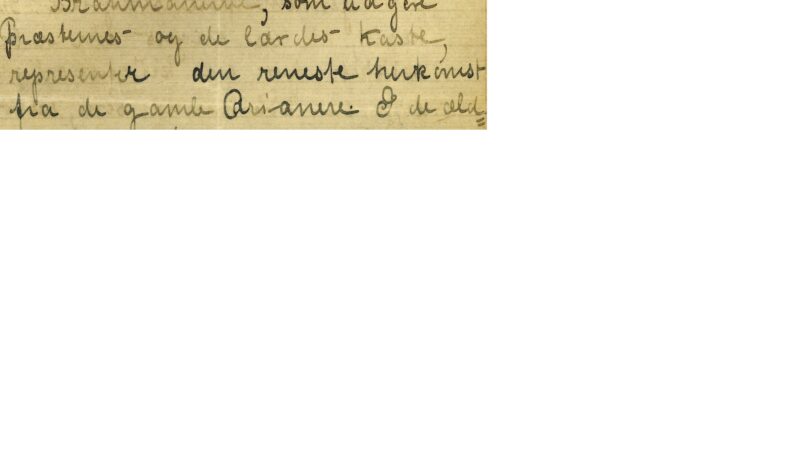 Brahmanerne, som udgere
præsternes og de lærdes kaste,
representer den reneste herkomst
fra de gamle Arianere. I de æld=